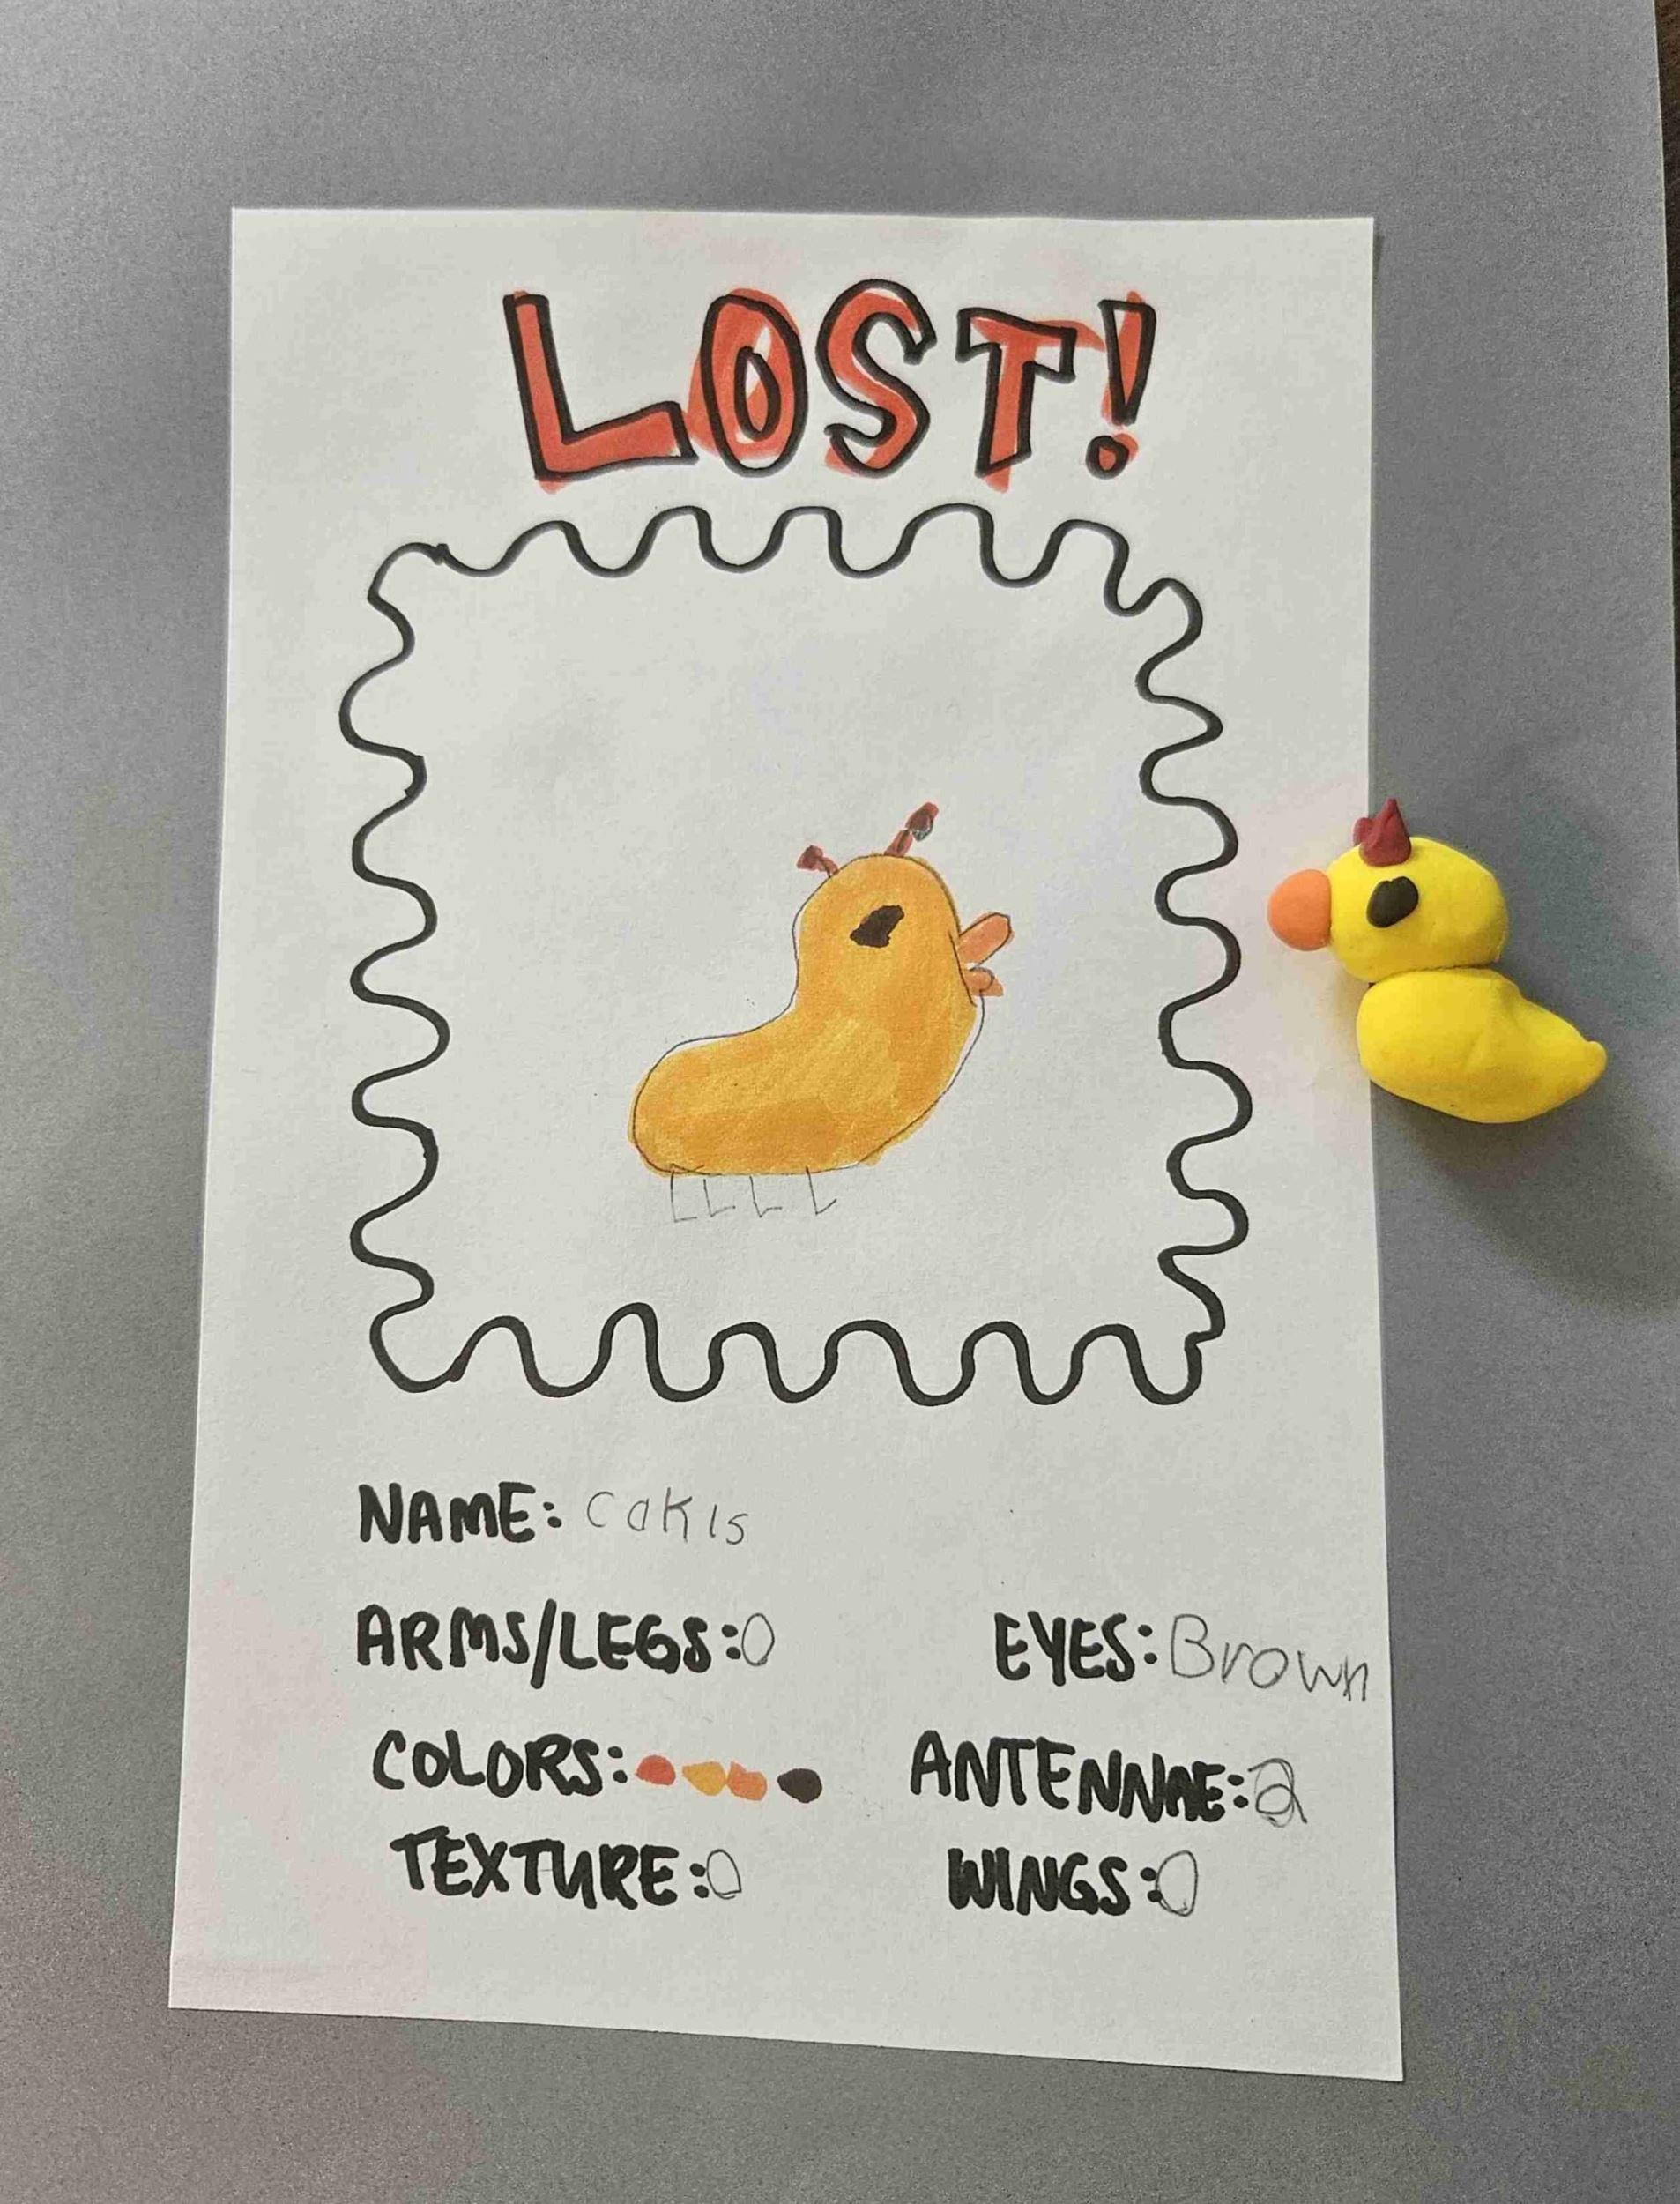 LOST!
NAME: cakis
ARMS/LEGS: 0 EYES: Brown
COLORS: ANTENNAE: 2
TEXTURE: 0 WINGS: 0